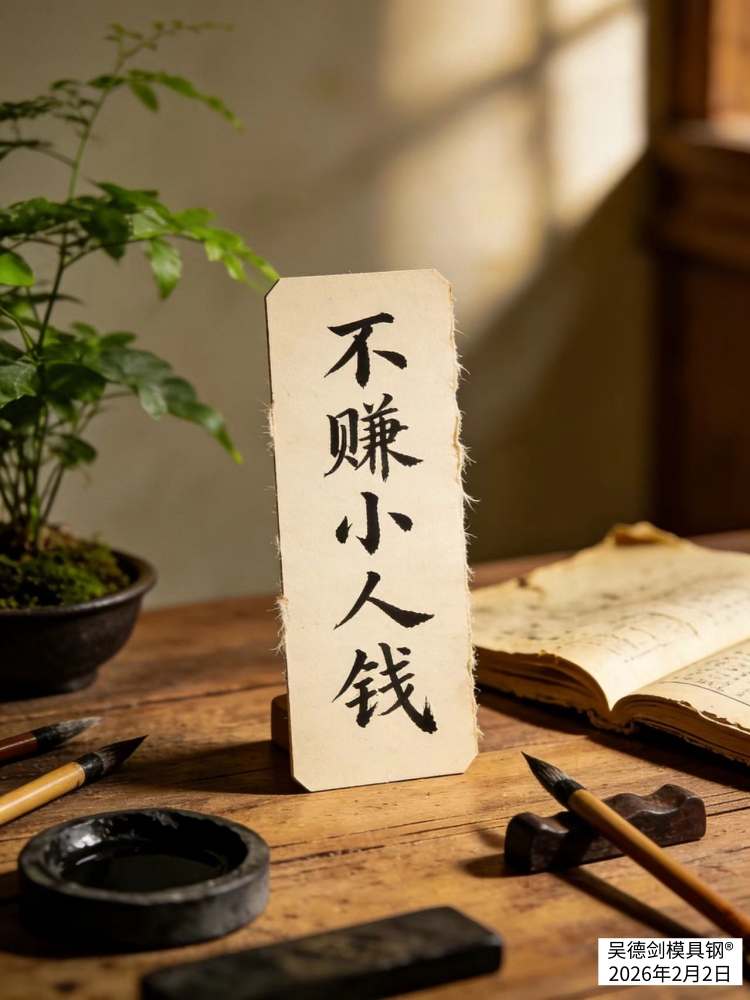 不赚小人钱
吴德剑模具钢®
2026年2月2日